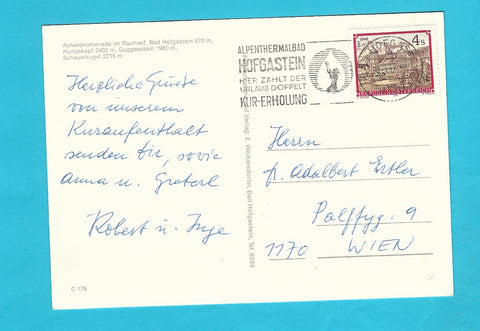 Achenpromenade im Rauhreif, Bad Hofgastein 870 m,
Hundskopf 2402 m, Guggenstein 1980 m,
Schauerkogel 2216 m
Herzliche Grüße
von unserem
Kuraufenthalt
senden Dir, sowie
Anna u. Greterl
Robert u. Inge
C 178
Bad Verlag: E. Wolkersdorfer, Bad Hofgastein, Tel. 6364
ALPENTHERMALBAD
HOFGASTEIN
HIER ZÄHLT DER
URLAUB DOPPELT
KUR-ERHOLUNG
HOFGAST
4 S
REPUBLIK ÖSTERREICH
Herrn
Adalbert Ertler
Palffyg. 9
1170 WIEN